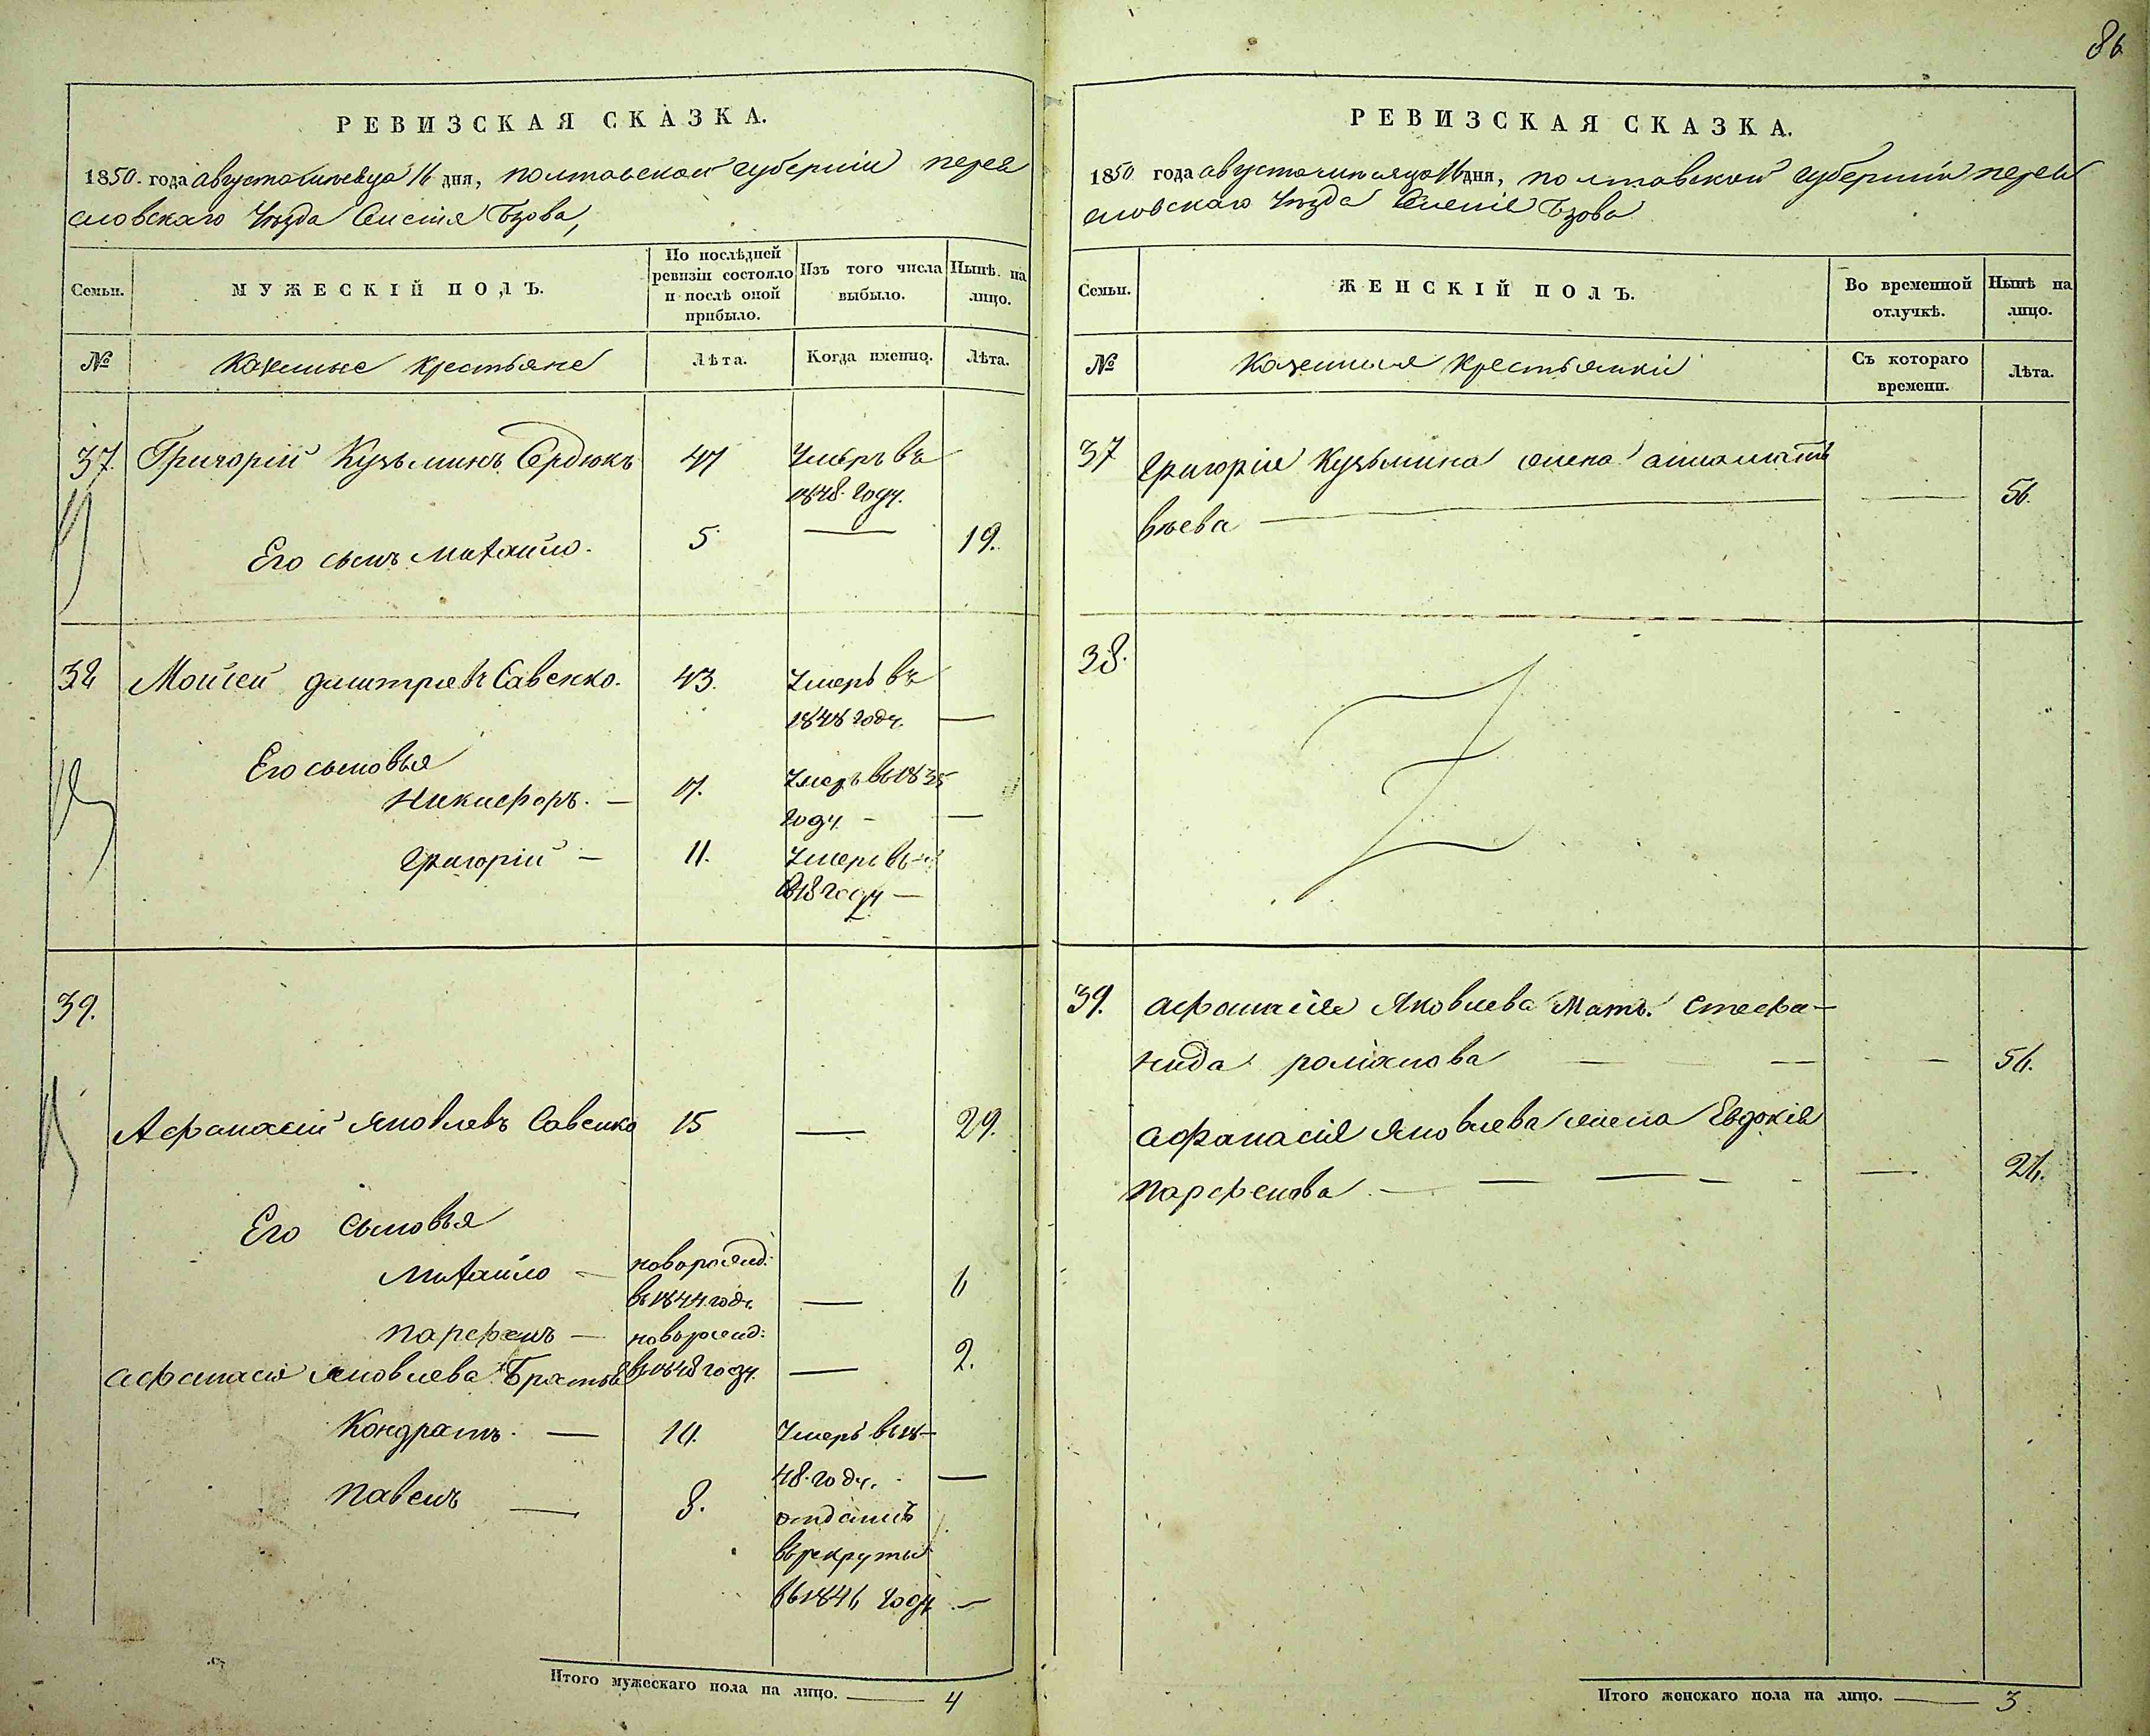 86
РЕВИЗСКАЯ СКАЗКА.
1850. года августа месяца 16 дня, полтавской губернии перея
словскаго Уезда Селения Бзова,
Семьи.
МУЖЕСКІЙ ПОЛЪ.
По послѣдней ревизіи состояло и послѣ оной прибыло.
Изъ того числа выбыло.
Нынѣ на лицо.
№
Казенные крестьяне
Лѣта.
Когда именно.
Лѣта.
37. Григорій Кузьминъ Сердюкъ 47 Умеръ въ
1848 году.
Его сынъ Михайло. 5 — 19.
38 Моисей дмитриевъ Савенко. 43. Умеръ въ
1848 году. —
Его сыновья
Никифоръ. — Умеръ въ 1835
году — —
григорій — 11. Умеръ въ
году —
39.
Афанасій Яковлевъ Савенко 15 — 29.
Его сыновья
Михайло — новорожд:
въ 1844 году. — 6
парфенъ — новорожд:
афанасия яковлева Братья въ 1848 году. — 2.
Кондратъ. — Умеръ въ 18-
48 году. —
павелъ — 8. отданъ
в рекруты
въ 1846 году —
Итого мужескаго пола на лицо. — 4
РЕВИЗСКАЯ СКАЗКА.
1850 года августа месяца 16 дня, полтавской губернии перея
словскаго Уезда Селения Бзова
Семьи.
ЖЕНСКІЙ ПОЛЪ.
Во временной отлучкѣ.
Нынѣ на лицо.
№
Казенныя Крестьянки
Съ котораго времени.
Лѣта.
37 григория Кузьмина жена
вѣева — — 56.
38.
39. афанасия Яковлева Мать. Стефа-
нида романова — — — 56.
афанасия яковлева жена Евдокия
парфенова — — — — — 26.
Итого женскаго пола на лицо. — 3.